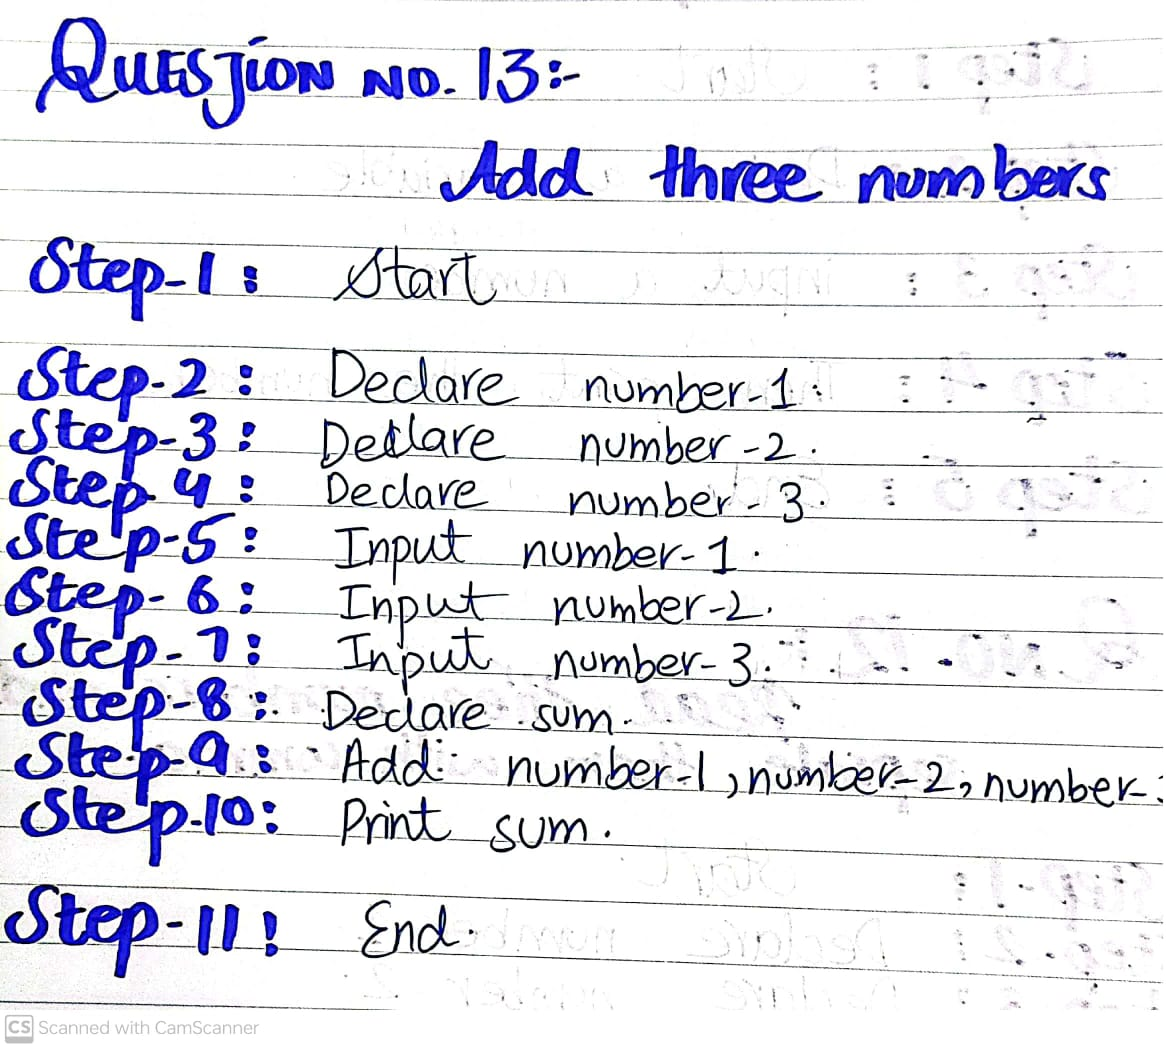 QUESTION NO. 13:-
Add three numbers
Step-1: Start
Step-2: Declare number-1.
Step-3: Declare number-2.
Step-4: Declare number-3.
Step-5: Input number-1.
Step-6: Input number-2.
Step-7: Input number-3.
Step-8: Declare sum.
Step-9: Add number-1, number-2, number-
Step-10: Print sum.
Step-11: End.
CS Scanned with CamScanner